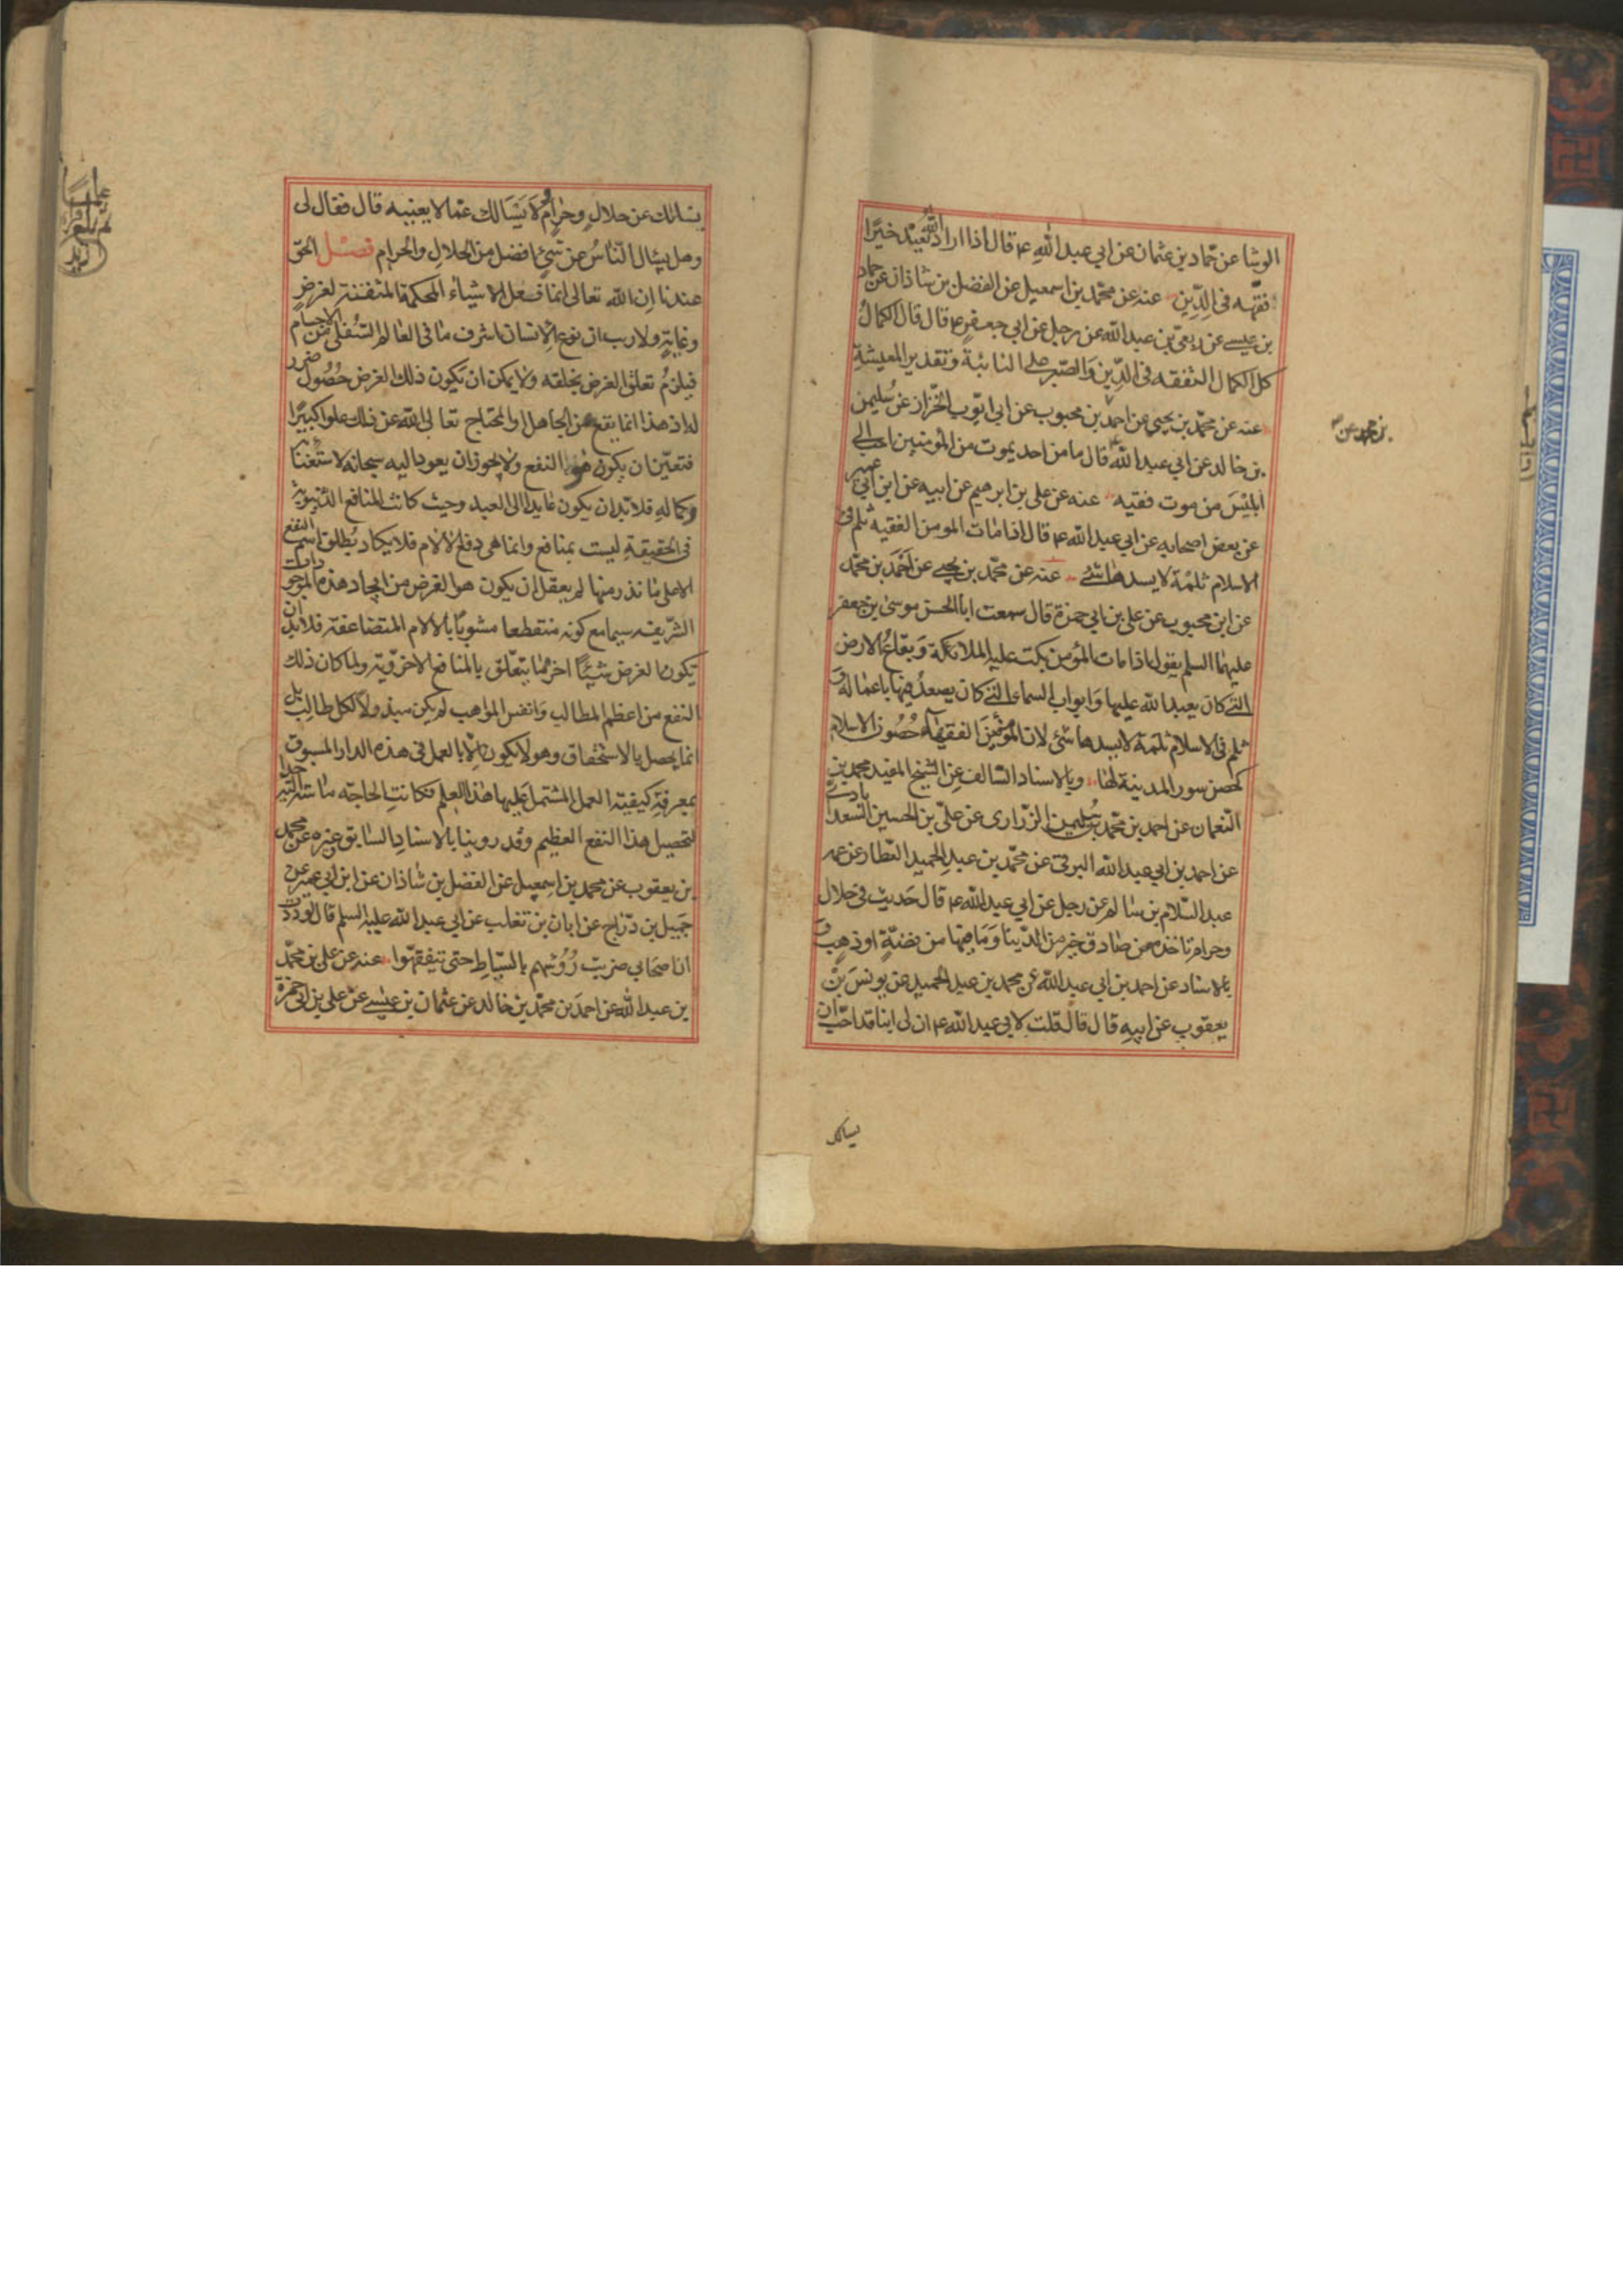 الوشا عن حمّاد بن عثمان عن ابي عبد الله ع قال اذا اراد الله بعبد خيرًا
فقهه فى الدّين عنه عن محمّد بن اسمعيل عن الفضل بن شاذان عن حماد
بن عيسى عن ربعى بن عبد الله عن رجل عن ابي جعفر ع قال قال الكمالُ
كل الكمال التفقه فى الدّين وَالصّبر على النائبة وَتقدير المعيشة
عنه عن محمّد بن يحيى عن احمد بن محبوب عن ابى ايّوب الخزّاز عن سُليمن
بن محمد عن
بن خالد عن ابي عبد الله ع قال ما من احد يموت من المؤمنين احب الى
ابليسَ من موت فقيه عنه عن على بن ابرهيم عن ابيه عن ابن ابي عمير
عن بعض اصحابه عن ابي عبد الله ع قال اذا مات المومن الفقيه ثلم فى
الاسلام ثلمة لا يسدها شئ عنه عن محمّد بن يحيى عن اَحْمَد بن محمّد
عن ابن محبوب عن على بن ابي حمزة قال سمعت ابا الحسن موسى بن جعفر
عليهما السلم يقول اذا مات المؤمن بكت عليه الملائكة وَبقاع الارض
التى كان يعبد الله عليها وَابواب السماء التى كان يصعد فيها باعماله و
ثلم فى الاسلام ثلمة لا يسدها شئ لان المؤمنينَ الفقهاء حُصُون الاسلام
كحصن سور المدينة لها وبالاسناد السّالف عن الشيخ المفيد محمد بن
النّعمان عن احمد بن محمّد بن سُليمن الزّرارى عن علىّ بن الحسين السّعدابادى
عن احمد بن ابي عبد الله البرقى عن محمّد بن عبد الحميد العطار عن عمه
عبد السّلام بن سالم عن رجل عن ابي عبد الله ع قال حَديث فى حلال
وحرام تاخذه من صادق خير من الدّنيا وَمَا فيها من فضّةٍ او ذهبٍ و
بالاسناد عن احمد بن ابي عبد الله عن محمد بن عبد الحميد عن يونسَ بن
يعقوب عن ابيه قال قال قلت لابي عبد الله ع ان لى ابنا قد احبّ ان
يسالك
يسالك عن حلالٍ وحرامٍ وَلا يَسَالك عمّا لا يعنيه قال فقال لى
وهل يسال النّاسُ عن شئٍ افضل من الحلال والحرام فصل الحق
عندنا اِن الله تعالى انما فعل الاشياء المحكمة المتقنة لغرضٍ
وغايةٍ ولا ريب ان نوع الانسان اشرف ما فى العالم السّفلى من الاجسام
فيلزمُ تعلق الغرض بخلقه ولا يمكن ان يكون ذلك الغرض حُصُول ضرر
له اذ هذا انما يقع من الجاهل او المحتاج تعالى الله عن ذلك علوا كبيرًا
فتعيّن ان يكون هو النفع ولا يجوز ان يعود اليه سبحانه لاستغنائه
وكماله فلا بّد ان يكون عايدا الى العبد وحيث كانت المنافع الدّنيوية
فى الحقيقة ليست بمنافع وانما هى دفع الالام فلا يكاد يُطلق اسم النفع
الا على ما ندر منها لم يعقل ان يكون هو الغرض من ايجاد هذه الموجودات
الشّريفه سيما مع كونه منقطعا مشوبًا بالالام المتضاعفة فلا بدّ ان
يكون الغرض شيئًا اخر ممّا يتعّلق بالمنافع الاخرويّة ولما كان ذلك
النفع من اعظم المطالب وَانفس المواهب لم يكن مبذولاً لكل طالب بل
انما يحصل بالاستحقاق وهو لا يكون الا بالعمل فى هذه الدار المسبوق
بمعرفة كيفيّة العمل المشتمل عليها هذا العلم فكانت الحاجة ماسّة اليه جدا
لتحصيل هذا النفع العظيم وقد روينا بالاسناد السّابق وغيره عن محمد
بن يعقوب عن محمد بن اسمعيل عن الفضل بن شاذان عن ابن ابي عمير عن
جَميل بن درّاج عن ابان بن تغلب عن ابي عبد الله عليه السلم قال لوددت
ان اصحابي ضربت رُؤسُهم بالسّياط حتى يتفقهّوا عنه عن على بن محمّد
بن عبد الله عن احمدَ بن محمّد بن خالد عن عثمان بن عيسى عن على بن ابي حمزة